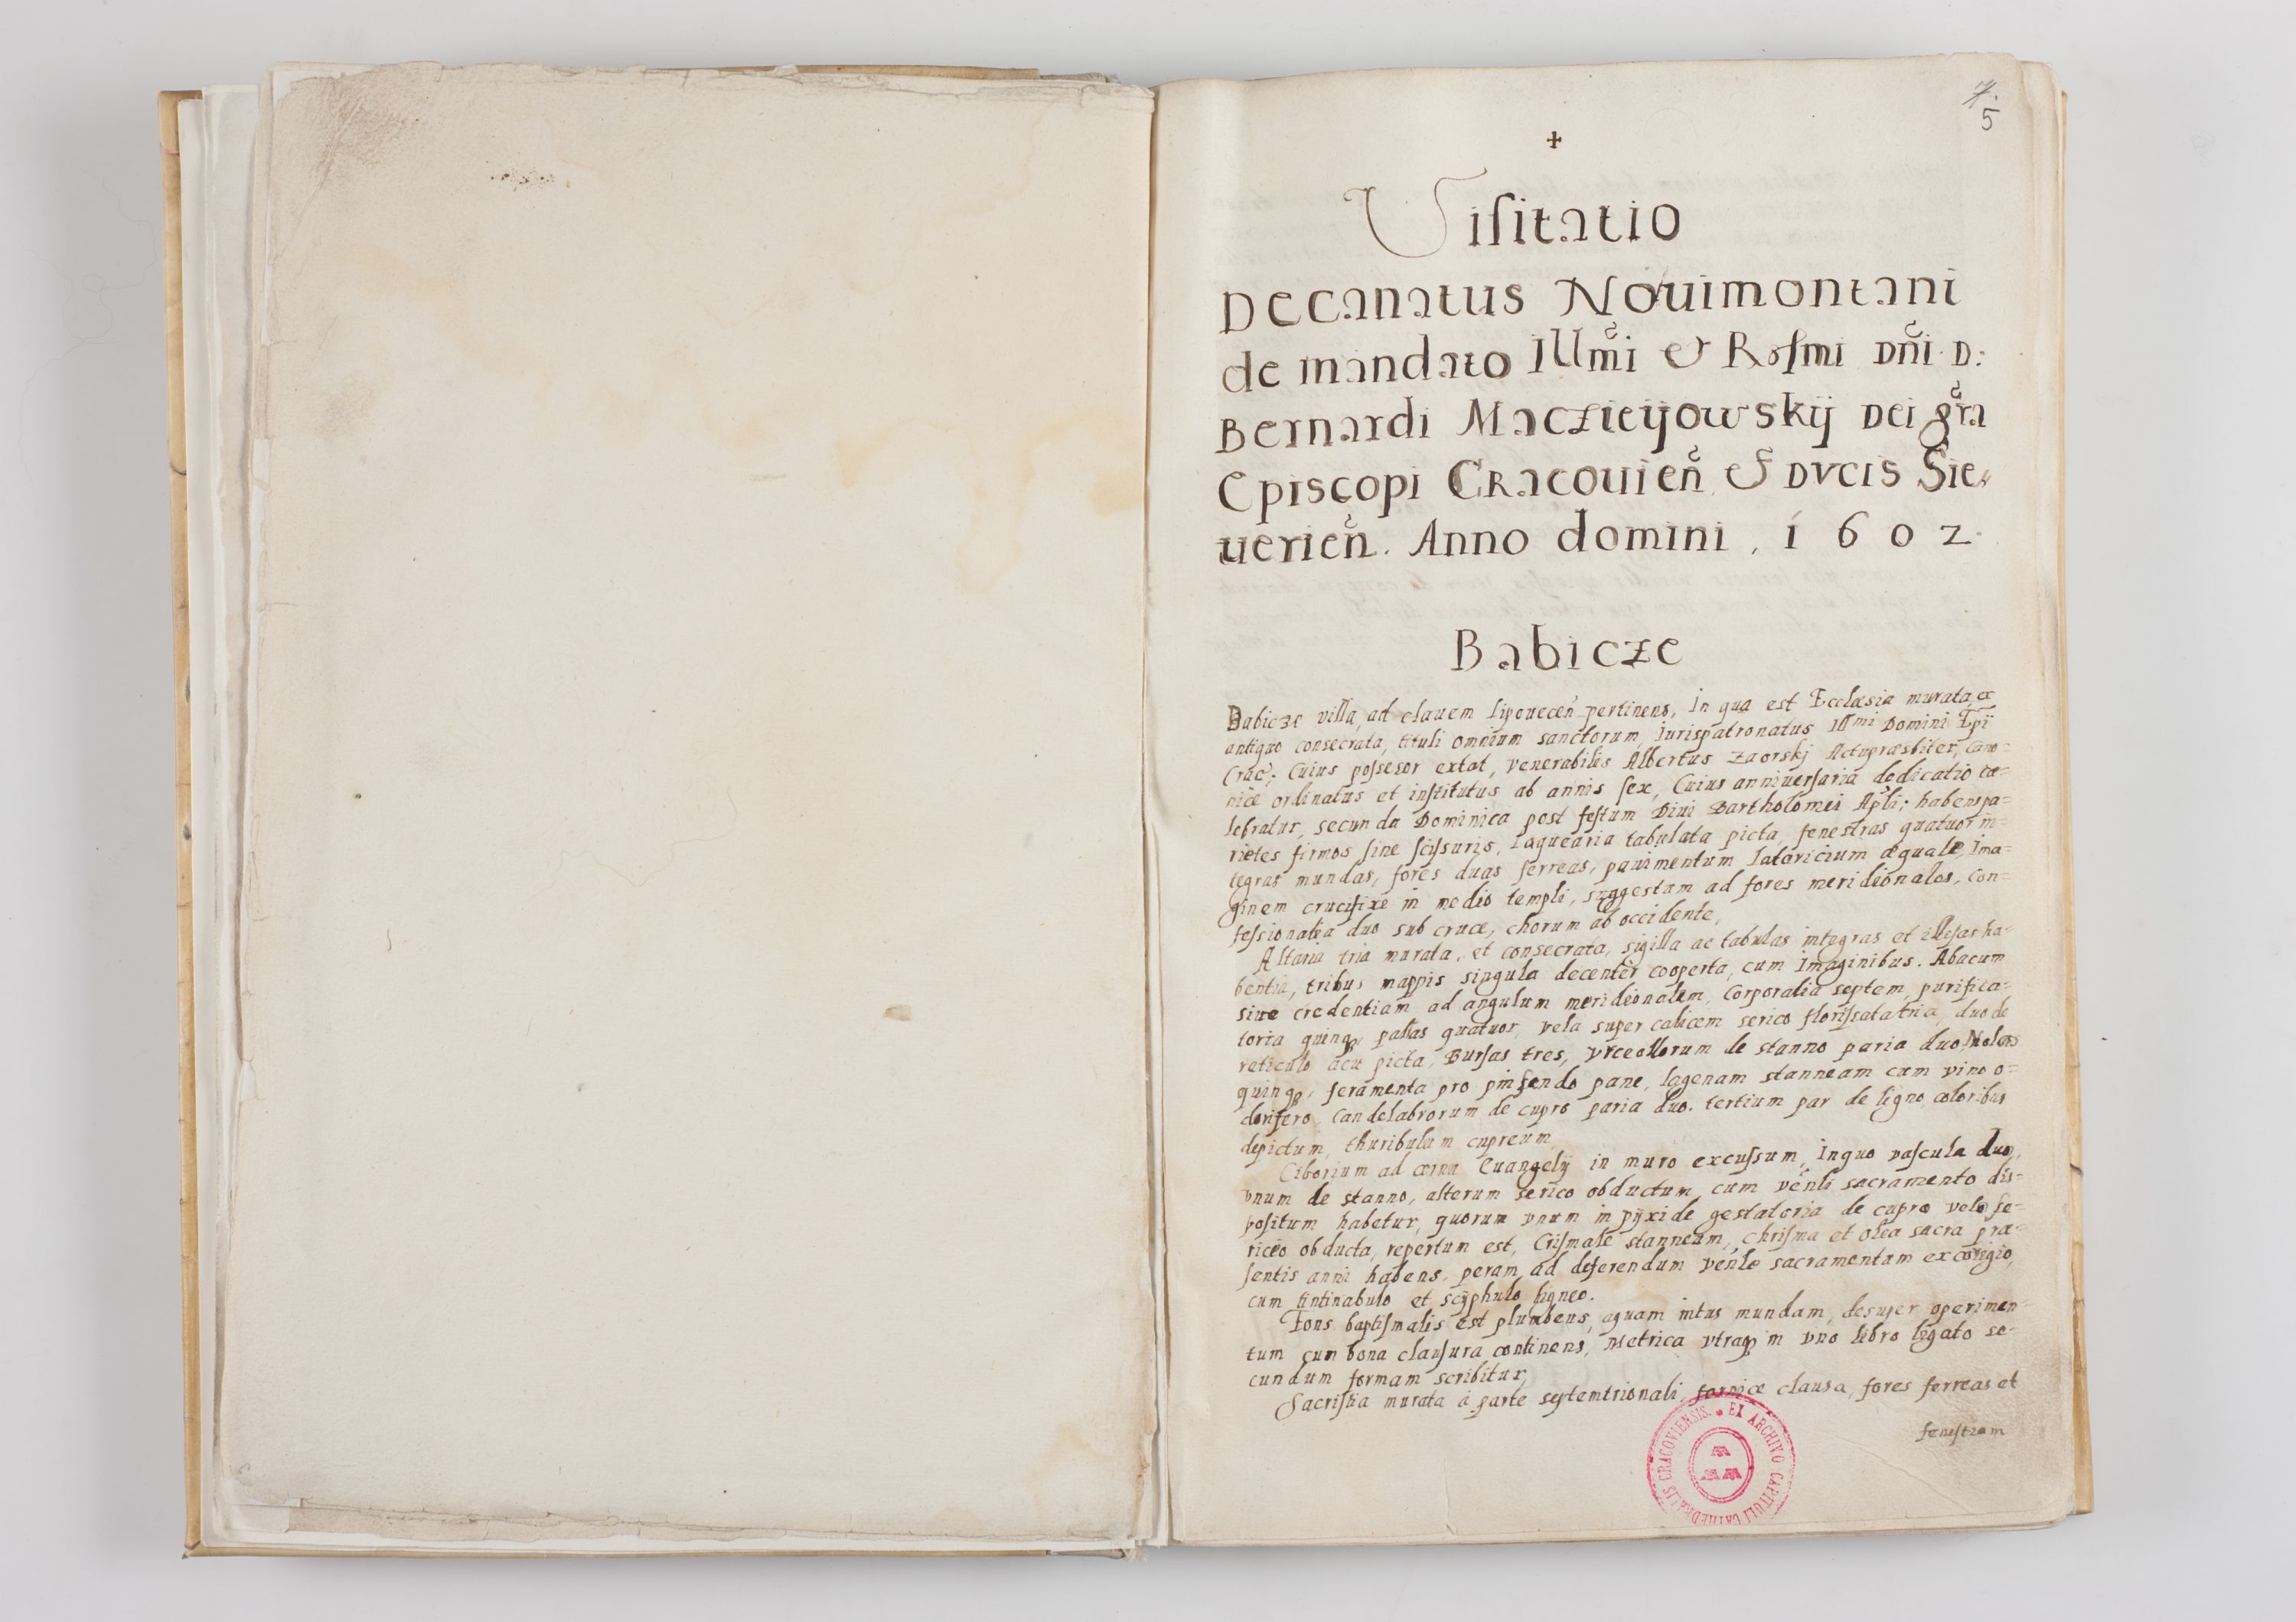 7.
5
+
Visitatio
Decanatus Novimontani
de mandato Illmi et Rssmi Dni D:
Bernardi Maczieijowskij Dei gra
Episcopi Cracouien et Dvcis Sie„
uerien. Anno domini, 1602.
Babicze
Babicze villa, ad clauem lipouecen pertinens, In qua est Ecclæsia murata, ex
antiquo consecrata, tituli omnium sanctorum, Jurispatronatus Illmi Domini Epi
Crac; Cuius possesor extat, venerabilis Albertus Zaorskj Actupræsbiter, Cano=
nice ordinatus et institutus ab annis sex, Cuius anniuersaria dedicatio cæ=
lebratur, secunda Dominica post festum Diui Bartholomei Apli; habens pa=
rietes firmos sine scissuris, laquearia tabulata picta, fenestras quatuor in=
tegras mundas, fores duas ferreas, pauimentum latericium æquale, Ima=
ginem crucifixi in medio templi, suggestum ad fores meridionales, Con=
fessionalia duo sub cruce, chorum ab occidente,
Altaria tria murata, et consecrata, sigilla ac tabulas integras et illesas ha=
bentia, tribus mappis singula decenter cooperta, cum Imaginibus. Abacum
siue credentiam ad angulum meridionalem, Corporalia septem, purifica=
toria quinq, pallas quatuor, vela super calicem serico florissata tria, duo de
reticulo acu picta, Bursas tres, vrceollorum de stanno paria duo, Nolas
quinq, feramenta pro pinsendo pane, lagenam stanneam cum vino o=
dorifero, Candelabrorum de cupro paria duo. tertium par de ligno coloribus
depictum, thuribulum cupreum,
Ciborium ad cornu Euangelij in muro excussum, In quo vascula duo,
vnum de stanno, alterum serico obductum, cum venli sacramento dis=
positum habetur, quorum vnum in pijxide gestatoria de cupro velo se=
riceo obducta, repertum est, Crismale stanneum, chrisma et olea sacra præ=
sentis anni habens, peram ad deferendum venle sacramentum ex corigio,
cum tintinabulo et scijphulo ligneo.
Fons baptismalis est plumbeus, aquam intus mundam, desuper operimen=
tum cum bona clausura continens, Metrica vtraq in vno libro ligato se=
cundum formam scribitur,
Sacristia murata à parte septemtrionali, fornice clausa, fores ferreas et
fenestram
EX ARCHIVO CAPITULI CATHEDRALIS CRACOVIENSIS.